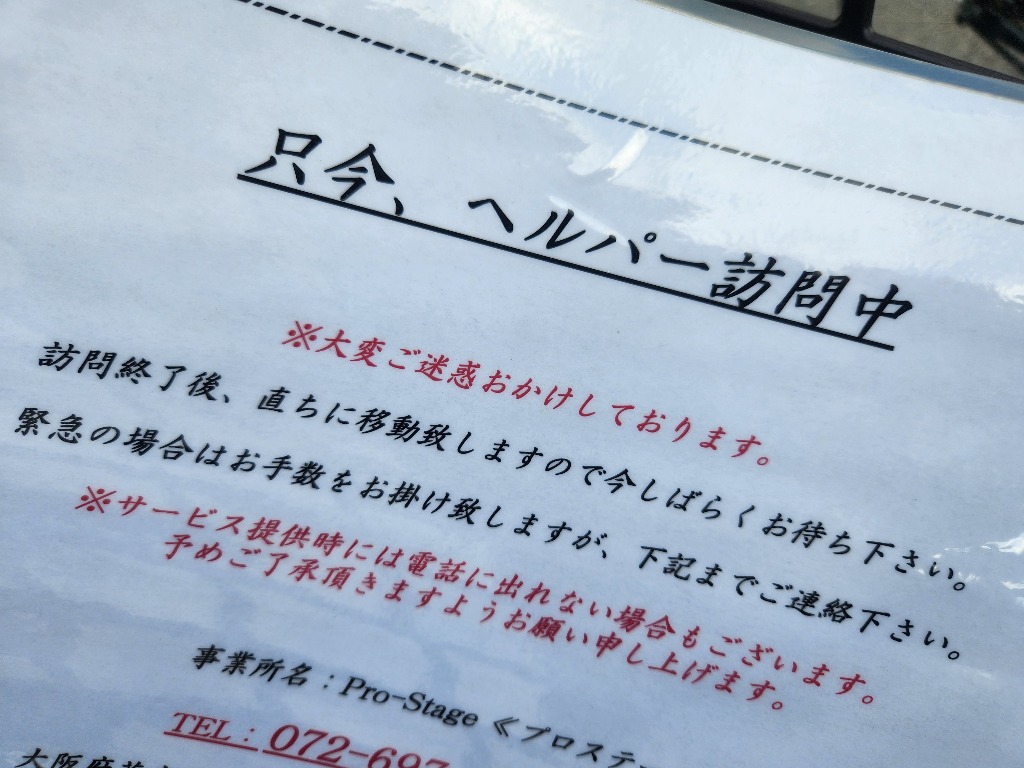 只今、ヘルパー訪問中
※大変ご迷惑おかけしております。
訪問終了後、直ちに移動致しますので今しばらくお待ち下さい。
緊急の場合はお手数をお掛け致しますが、下記までご連絡下さい。
※サービス提供時には電話に出れない場合もございます。
予めご了承頂きますようお願い申し上げます。
事業所名：Pro-Stage ≪プロステー
TEL：072-697
大阪府